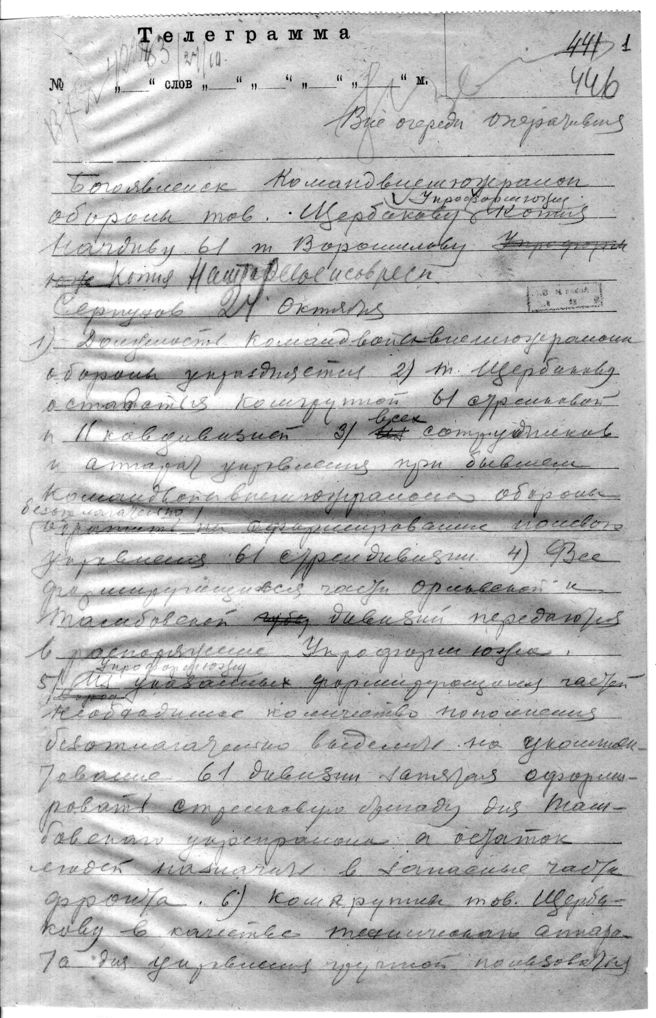 Телеграмма
441 1
27/10
№ „___“ слов „___“ „___“ „___“ „___“ м.
446
Вне очереди оперативная
Богоявленск Командвнешюжрайон
Упрформюжа
обороны тов. Щербакову Копия
Начдиву 61 т Ворошилову Упрформ
юж Копия
Серпухов 27 октября
1) Должность Командвойсквнешюжрайона
обороны упраздняется 2) т. Щербакову
остаться Комгруппой 61 стрелковой
и 11 кавдивизией 3) всех сотрудников
и аппарат управления при бывшем
Командвойсквнешюжрайона обороны
безотлагательно
обратить на сформирование полевого
управления 61 стрелдивизии 4) Все
формирующиеся части Орловской и
Тамбовской губ дивизий передаются
в распоряжение Упрформюжа.
Упрформюжу
5) Из указанных формирующихся частей
необходимое количество пополнения
безотлагательно выделить на укомплек-
тование 61 дивизии затем сформи-
ровать стрелковую бригаду для Там-
бовского укрепрайона а остаток
людей назначить в запасные части
фронта. 6) Комгруппы тов. Щерба-
кову в качестве технического аппара-
та для управления группой пользоваться